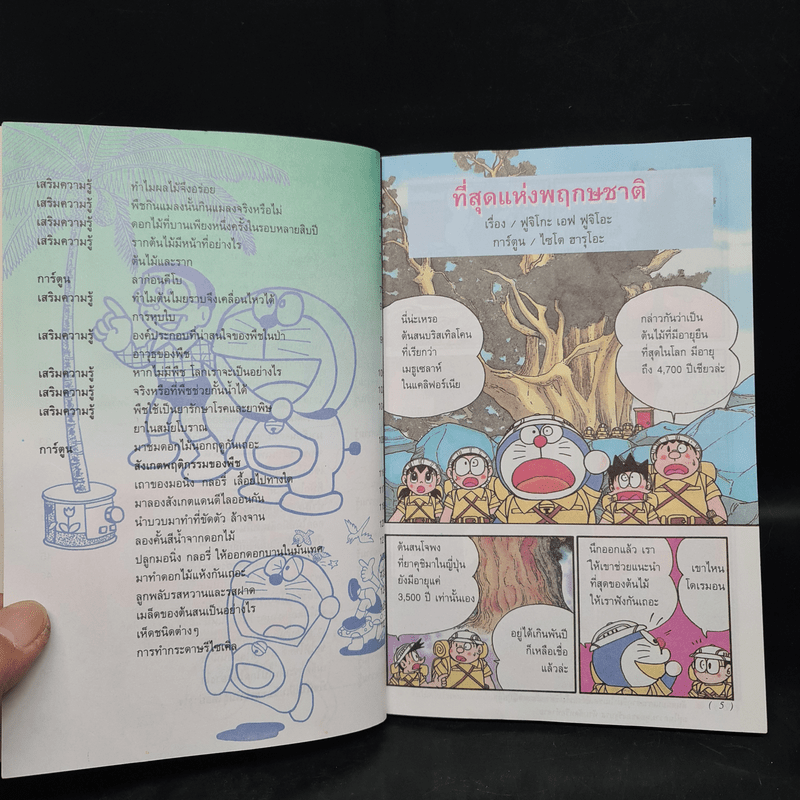 เสริมความรู้ ทำไมผลไม้จึงอร่อย
เสริมความรู้ พืชกินแมลงนั้นกินแมลงจริงหรือไม่
เสริมความรู้ ดอกไม้ที่บานเพียงหนึ่งครั้งในรอบหลายสิบปี
เสริมความรู้ รากต้นไม้มีหน้าที่อย่างไร
ต้นไม้และราก
การ์ตูน ลาก่อนคีโบ
เสริมความรู้ ทำไมต้นไมยราบจึงเคลื่อนไหวได้
การหุบใบ
เสริมความรู้ องค์ประกอบที่น่าสนใจของพืชในป่า
อาวุธของพืช
เสริมความรู้ หากไม่มีพืช โลกเราจะเป็นอย่างไร
เสริมความรู้ จริงหรือที่พืชช่วยกั้นน้ำได้
เสริมความรู้ พืชใช้เป็นยารักษาโรคและยาพิษ
ยาในสมัยโบราณ
การ์ตูน มาชมดอกไม้นอกฤดูกันเถอะ
สังเกตพฤติกรรมของพืช
เถาของมอนิ่ง กลอรี่ เลื้อยไปทางใด
มาลองสังเกตแดนดีไลออนกัน
นำบวบมาทำที่ขัดตัว ล้างจาน
ลองคั้นสีน้ำจากดอกไม้
ปลูกมอนิ่ง กลอรี่ ให้ออกดอกบานในขั้นเทศ
มาทำดอกไม้แห้งกันเถอะ
ลูกพลับรสหวานและรสฝาด
เมล็ดของต้นสนเป็นอย่างไร
เห็ดชนิดต่างๆ
การทำกระดาษรีไซเคิล
ที่สุดแห่งพฤกษชาติ
เรื่อง / ฟูจิโกะ เอฟ ฟูจิโอะ
การ์ตูน / ไซโต ฮารุโอะ
นี่น่ะเหรอ
ต้นสนบริสเทิลโคน
ที่เรียกว่า
เมธูเซลาห์
ในแคลิฟอร์เนีย
กล่าวกันว่าเป็น
ต้นไม้ที่มีอายุยืน
ที่สุดในโลก มีอายุ
ถึง 4,700 ปีเชียวล่ะ
ต้นสนโจพง
ที่ยาคุชิมาในญี่ปุ่น
ยังมีอายุแค่
3,500 ปี เท่านั้นเอง
อยู่ได้เกินพันปี
ก็เหลือเชื่อ
แล้วล่ะ
นึกออกแล้ว เรา
ให้เขาช่วยแนะนำ
ที่สุดของต้นไม้
ให้เราฟังกันเถอะ
เขาไหน
โดเรมอน
( 5 )